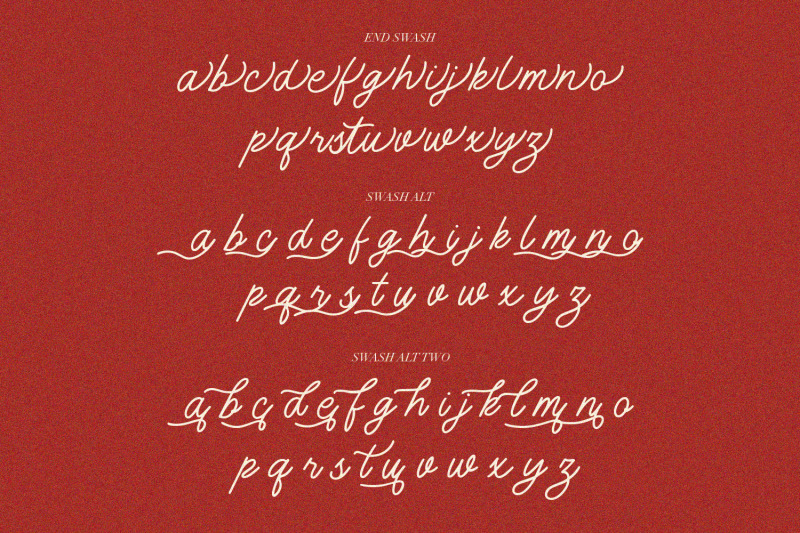 END SWASH
abcdefghijklmno
pqrstuvwxyz
SWASH ALT
abcdefghijklmno
pqrstuvwxyz
SWASH ALT TWO
abcdefghijklmno
pqrstuvwxyz